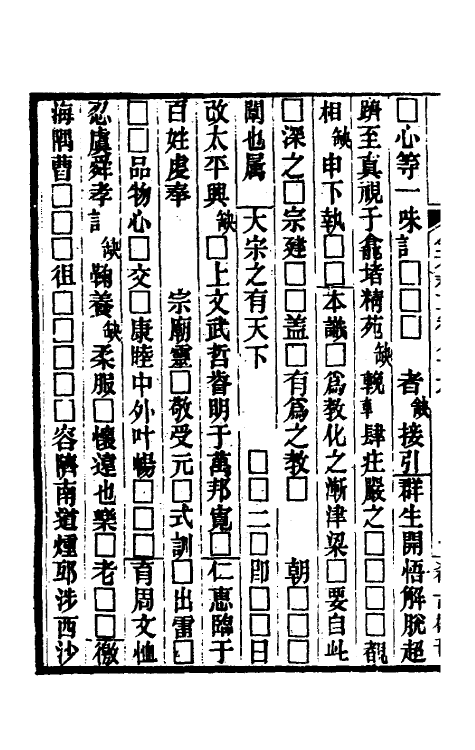 □心等一味詎□□□　者缺接引群生開悟解脫超
躋至真視于龕堵精苑缺　　肆庄嚴之□□□□□覩
相缺申下執□□本議□為教化之漸津梁□要自此
□深之□宗建□□盖□有為之教□　朝□□□□
闡也属　大宗之有天下　　□□二□即□□□日
改太平興缺□上文武哲睿明于萬邦寬□仁惠臨于
百姓虔奉　宗廟靈□敬受元□式訓□出雷□
□□品物心□交□康睦中外叶暢□□□育周文恤
忍虞舜孝詎缺鞠養缺柔服□懷遠也樂□老□□徼
海隅曹□□□徂□□□□□容隮南道煙邛涉西沙